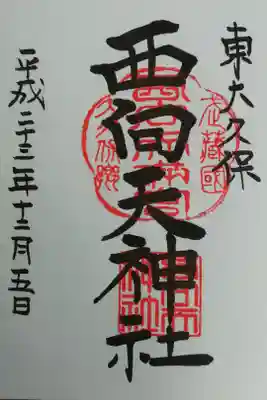 東大久保
西向天神社
平成二十三年十二月五日
武蔵國